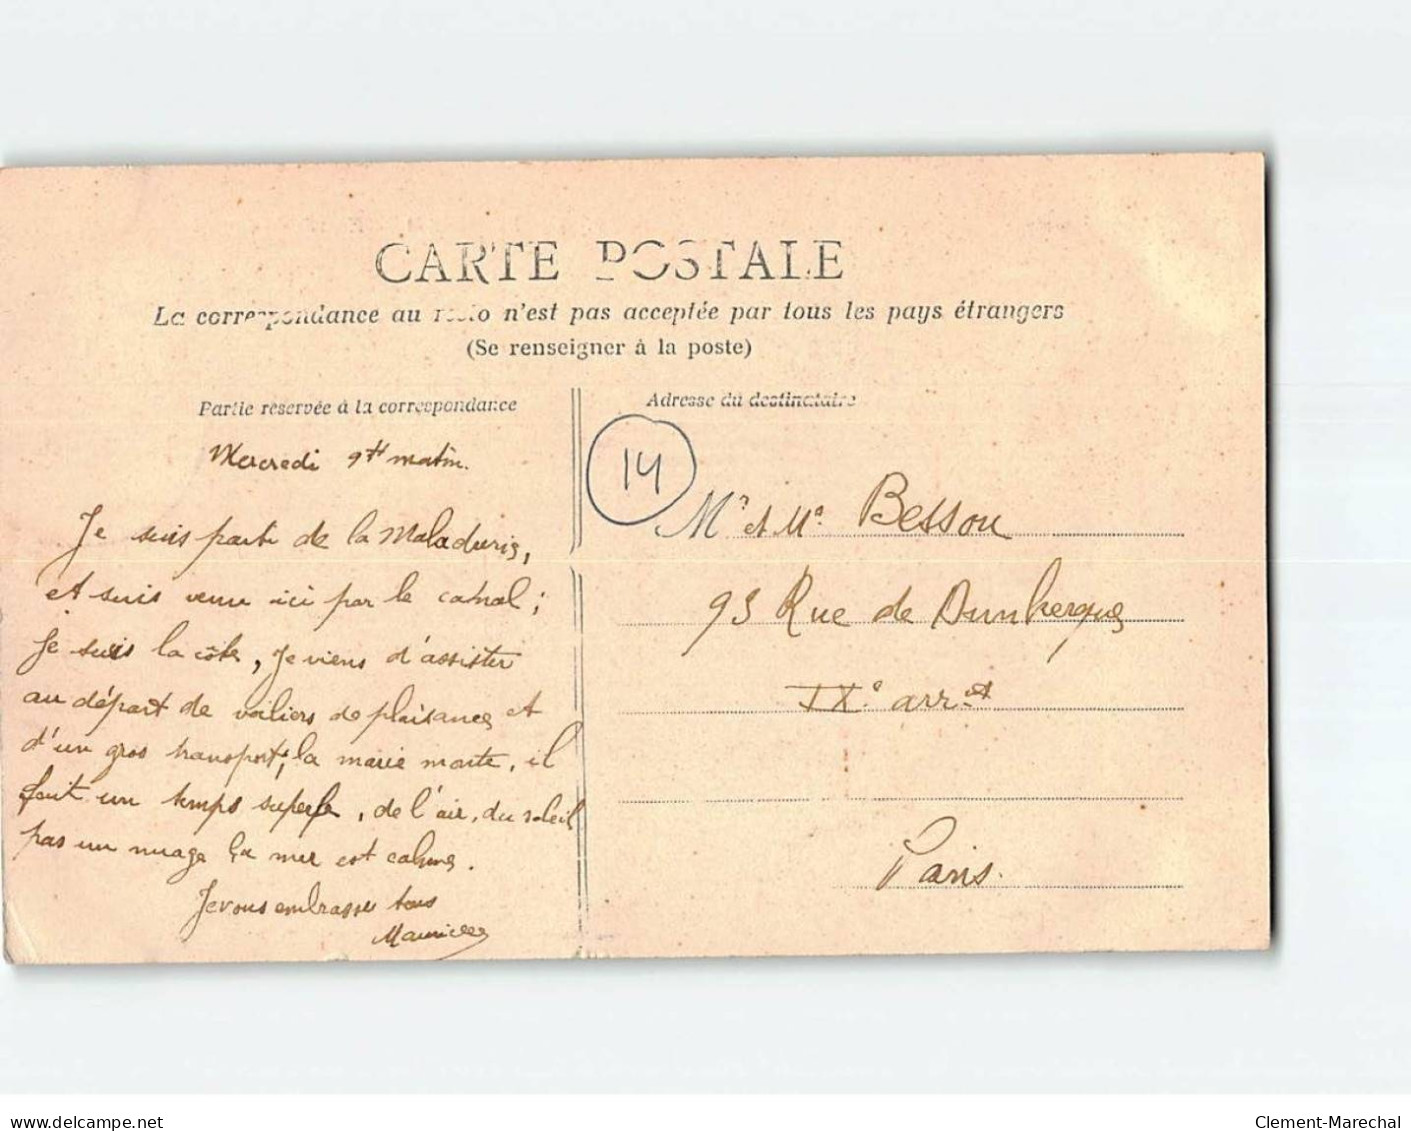 CARTE POSTALE
La correspondance au recto n'est pas acceptée par tous les pays étrangers
(Se renseigner à la poste)
Partie réservée à la correspondance
Mercredi 9 matin.
Je suis parti de la
et suis venu ici par le canal ;
je suis la côte, je viens d'assister
au départ de voiliers de plaisance et
d'un gros transport, la marée monte, il
fait un temps superbe, de l'air, du soleil
pas un nuage la mer est calme.
Je vous embrasse tous
Maurice
Adresse du destinataire
14
Mr et Me Besson
93 Rue de Dunkerque
IXe arrt
Paris.
delcampe.net
Clement-Marechal